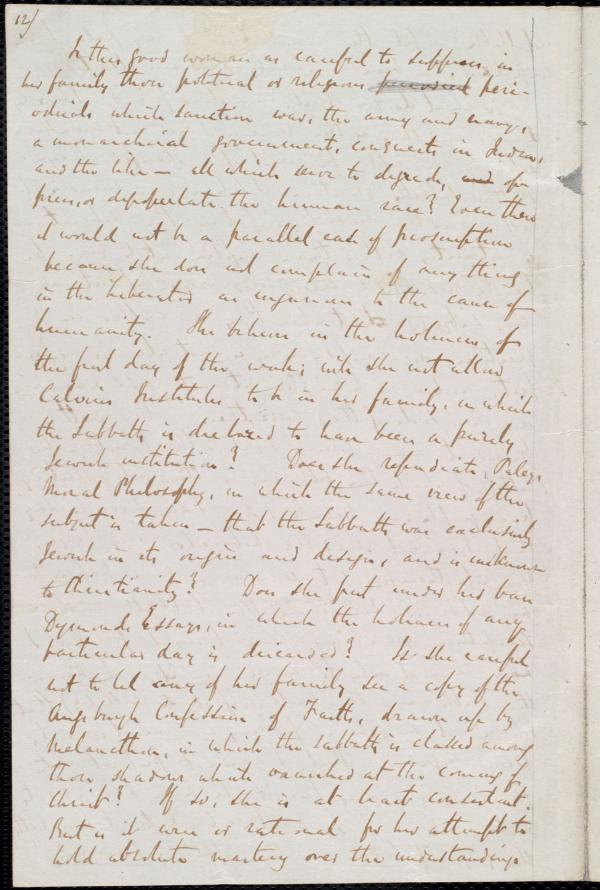 12/
Is this good woman as careful to suppress, in
her family those political or religious periodical peri-
odicals which sanction war, the army and navy,
a monarchical government, conquests in India,
and the like — all which serve to degrade, and op-
press, or depopulate the human race? Even then
it would not be a parallel case of proscription
because she does not complain of any thing
in the Liberator as injurious to the cause of
humanity. She believes in the holiness of
the first day of the week; will she not allow
Calvin's Institutes to be in her family, in which
the Sabbath is declared to have been a purely
Jewish institution? Does she repudiate Paley's
Moral Philosophy, in which the same view of the
subject is taken — that the Sabbath was exclusively
Jewish in its origin and design, and is unknown
to Christianity? Does she put under her ban
Dymond's Essays, in which the holiness of any
particular day is discarded? Is she careful
not to let any of her family see a copy of the
Augsburgh Confession of Faith, drawn up by
Melancthon, in which the Sabbath is classed among
those shadows which vanished at the coming of
Christ? If so, she is at least consistent.
But is it wise or rational for her attempt to
hold absolute mastery over the understandings